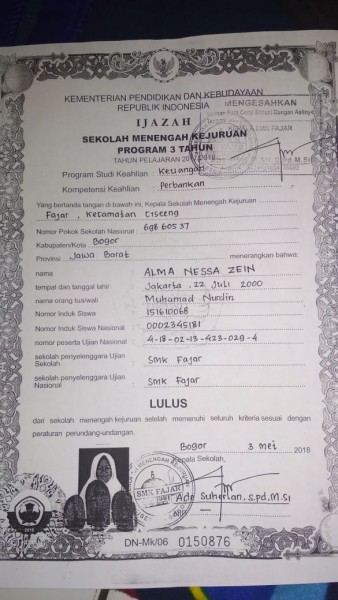 KEMENTERIAN PENDIDIKAN DAN KEBUDAYAAN
REPUBLIK INDONESIA
MENGESAHKAN
IJAZAH
SEKOLAH MENENGAH KEJURUAN
SMK FAJAR
PROGRAM 3 TAHUN
TAHUN PELAJARAN 2017/2018
Program Studi Keahlian : Keuangan
Kompetensi Keahlian : Perbankan
Yang bertanda tangan di bawah ini, Kepala Sekolah Menengah Kejuruan
Fajar, Kecamatan Ciseeng
Nomor Pokok Sekolah Nasional : 698 605 37
Kabupaten/Kota Bogor
Provinsi Jawa Barat menerangkan bahwa:
nama ALMA NESSA ZEIN
tempat dan tanggal lahir Jakarta, 22 Juli 2000
nama orang tua/wali Muhamad Nurdin
Nomor Induk Siswa 151610068
Nomor Induk Siswa Nasional 0002345181
nomor peserta Ujian Nasional 4-18-02-13-423-029-4
sekolah penyelenggara Ujian Sekolah : Smk Fajar
sekolah penyelenggara Ujian Nasional : Smk Fajar
LULUS
dari sekolah menengah kejuruan setelah memenuhi seluruh kriteria sesuai dengan
peraturan perundang-undangan.
Bogor 3 mei 2018
Kepala Sekolah,
SMK FAJAR
Ade Suherlan, S.pd, M.Si
DN-Mk/06 0150876